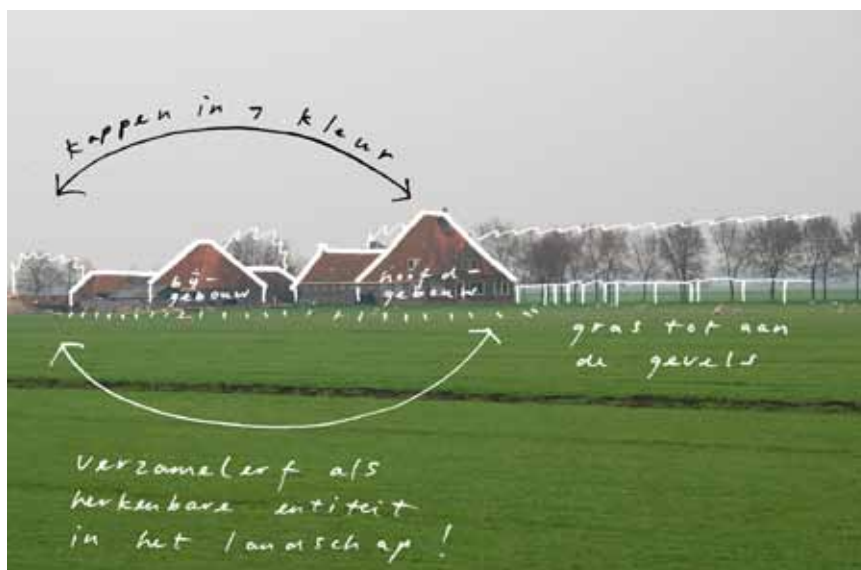 kappen in 1 kleur
bij-
gebouw
hoofd-
gebouw
gras tot aan
de gevels
verzamelerf als
herkenbare entiteit
in het landschap!